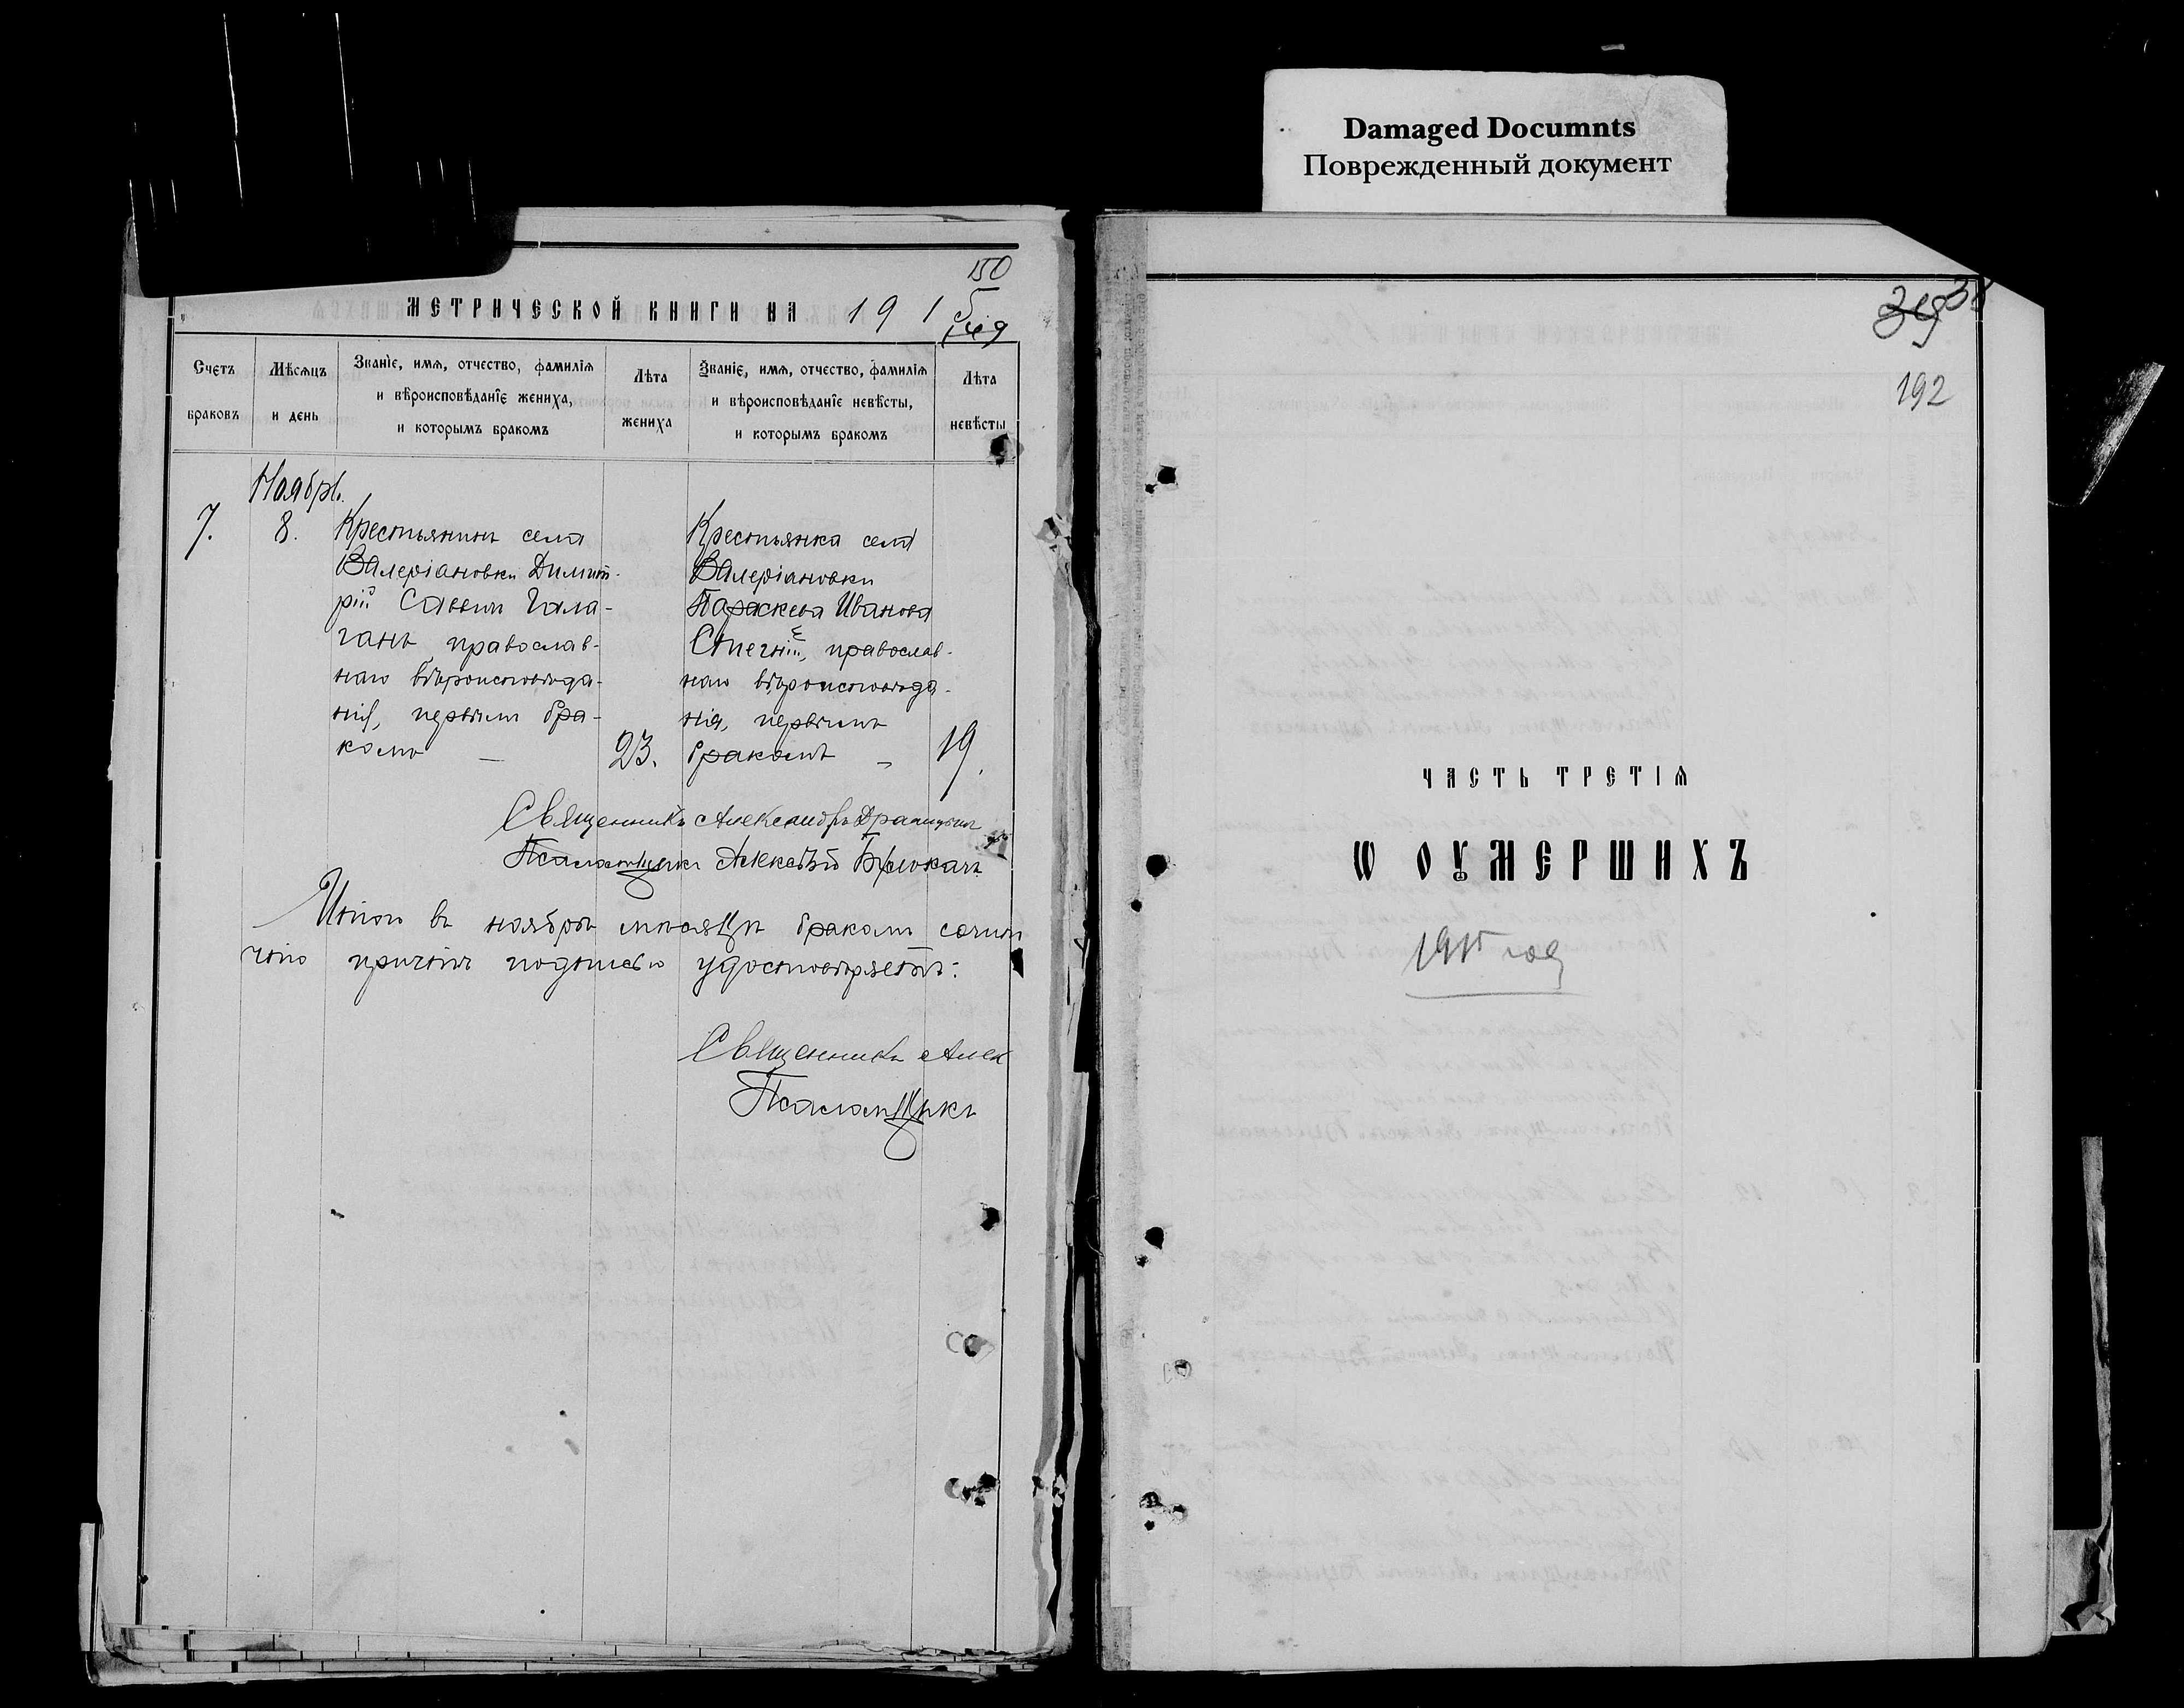 Damaged Documnts
Поврежденный документ
150
МЕТРИЧЕСКОЙ КНИГИ НА 191
149
Счетъ браковъ
Мѣсяцъ и день
Званіе, имя, отчество, фамилія
и вѣроисповѣданіе жениха,
и которымъ бракомъ
Лѣта жениха
Званіе, имя, отчество, фамилія
и вѣроисповѣданіе невѣсты,
и которымъ бракомъ
Лѣта невѣсты
Ноябрь.
7.
8.
Крестьянинъ села
Валеріановки Димит-
рій Саввинъ Гала-
ганъ, православ-
наго вѣроисповѣда-
нія, первымъ бра-
комъ —
23.
Крестьянка села
Валеріановки
Параскева Иванова
православ-
наго вѣроисповѣда-
нія, первымъ
бракомъ —
19.
Священникъ Александръ
Псаломщикъ Алексѣй
Итого въ ноябрѣ мѣсяцѣ бракомъ
причтъ подписью удостовѣряетъ:
Священникъ Алек
Псаломщикъ
38
192
ЧАСТЬ ТРЕТІЯ
Ѡ ОУМЕРШИХЪ
1915 год